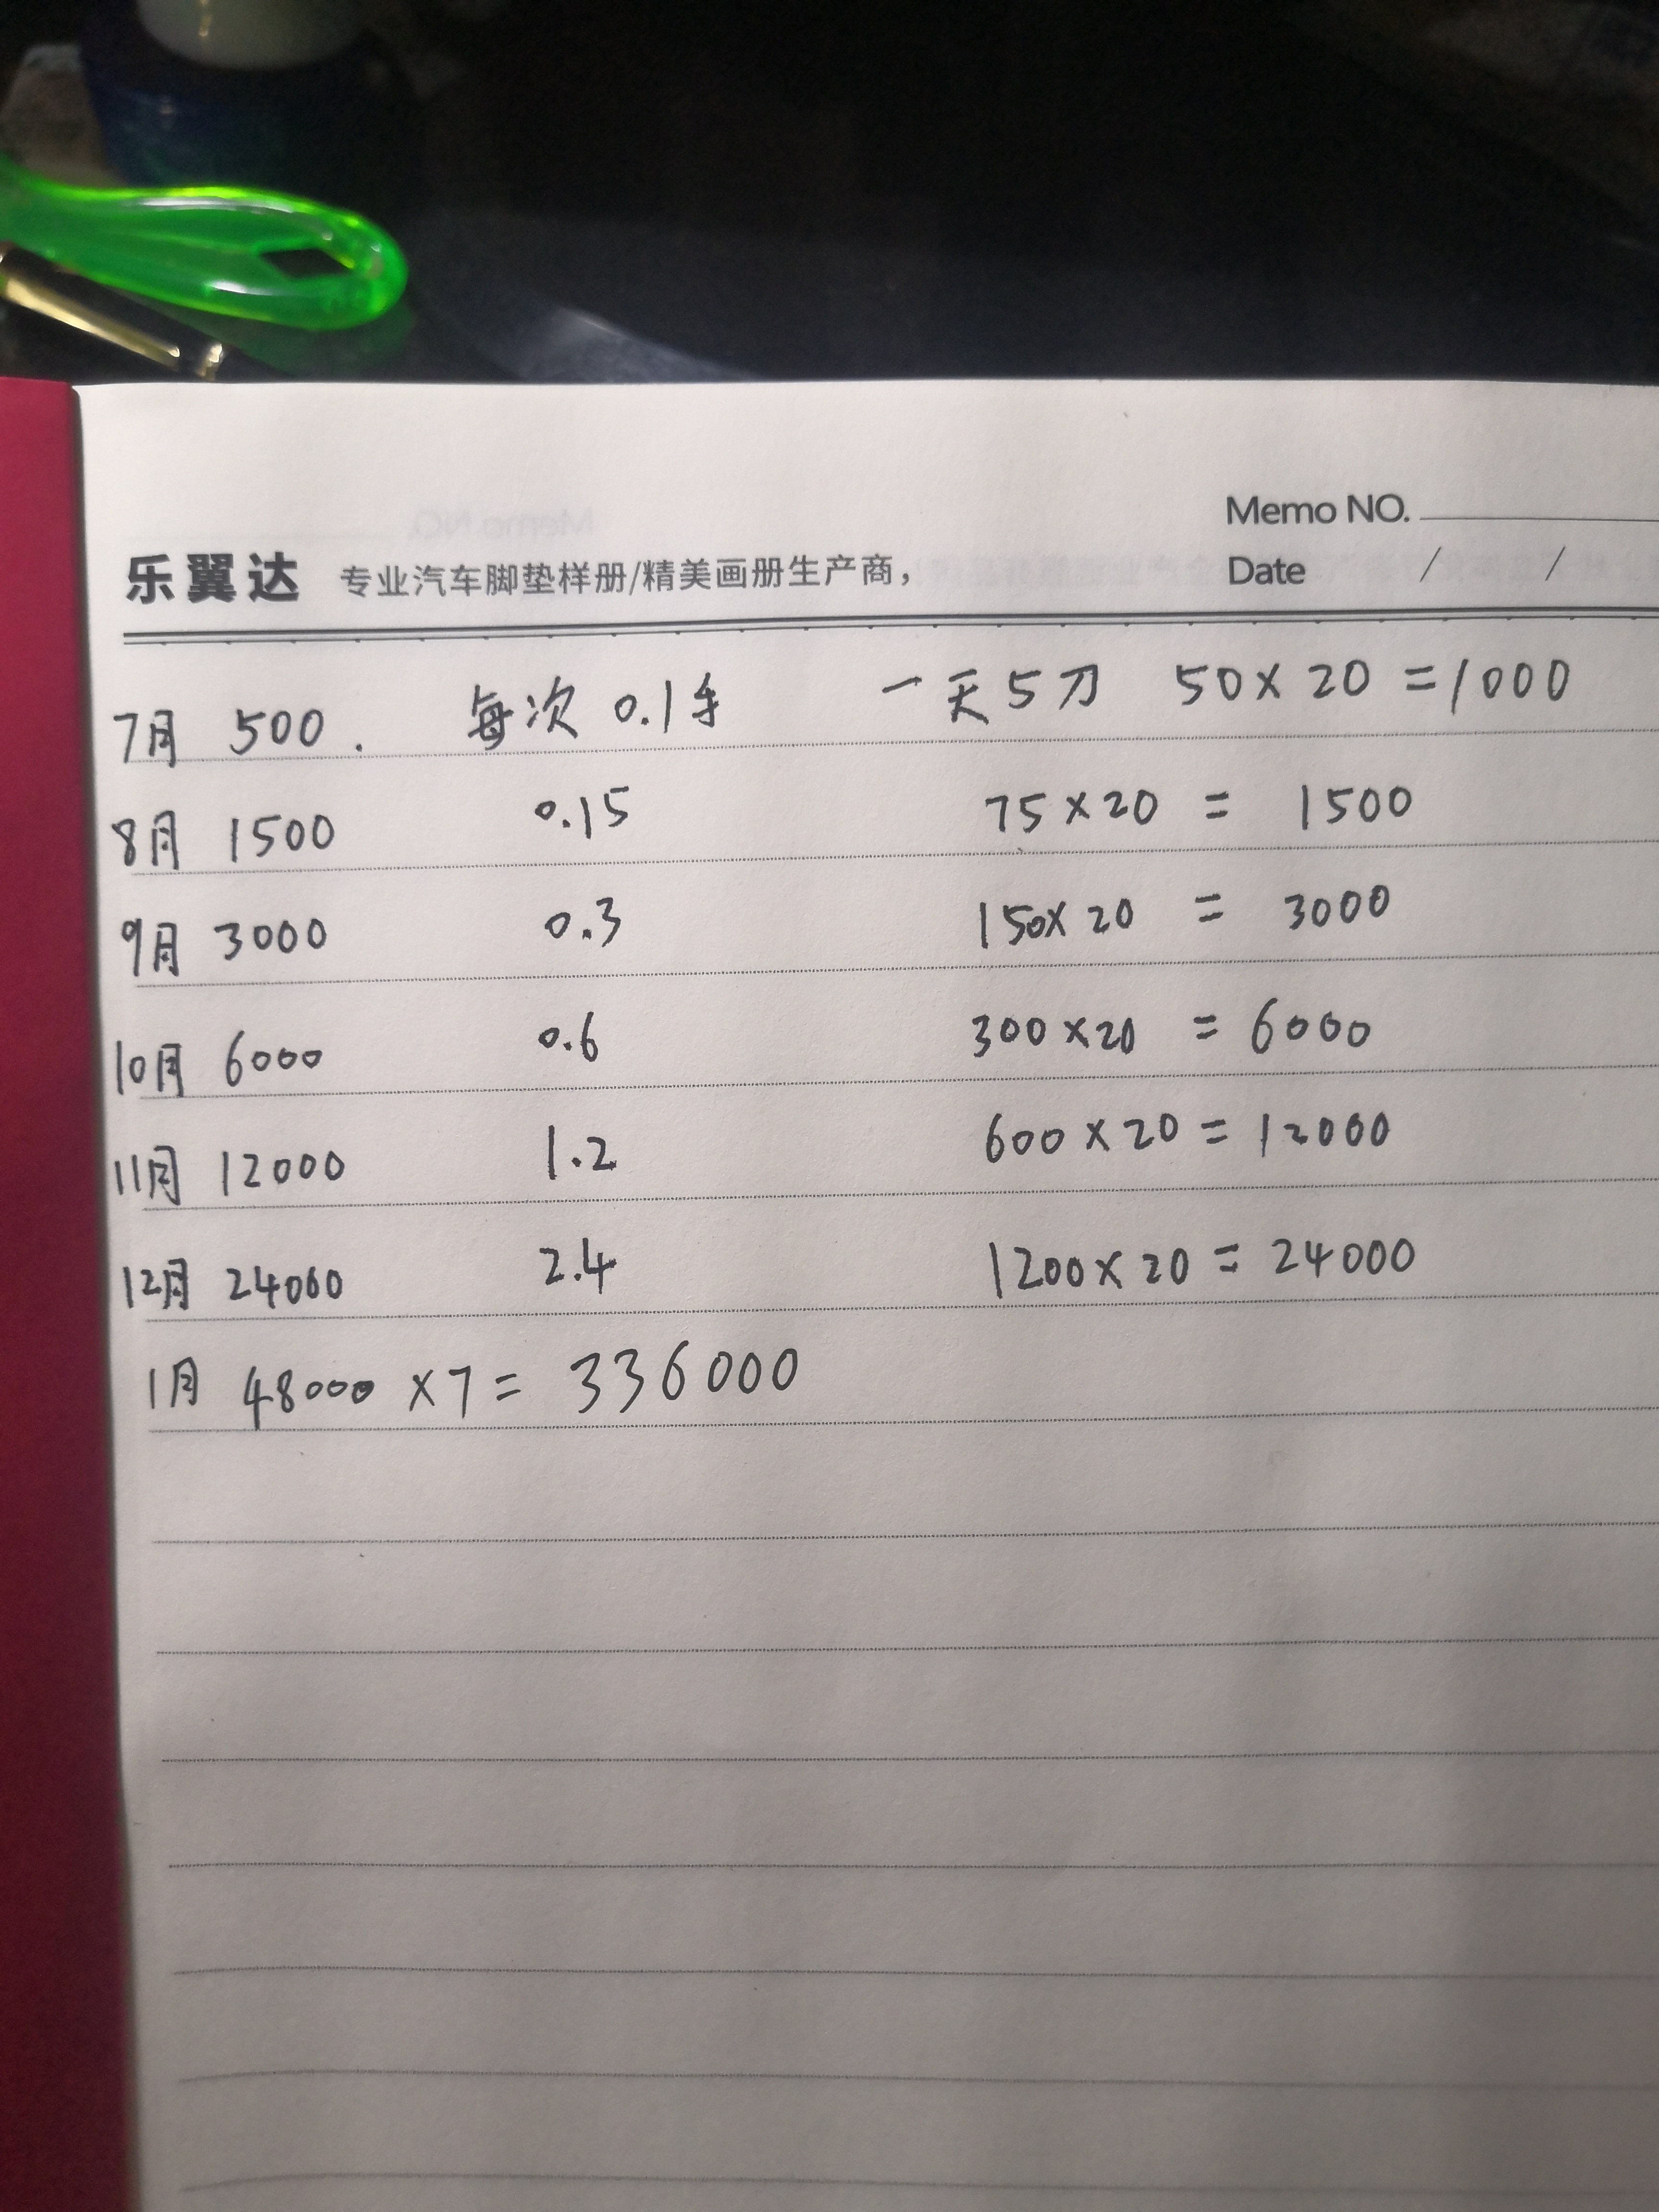 Memo NO.
乐翼达 专业汽车脚垫样册/精美画册生产商，
Date / /
7月 500. 每次 0.1手 一天5刀 50×20=1000
8月 1500 0.15 75×20 = 1500
9月 3000 0.3 150×20 = 3000
10月 6000 0.6 300×20 = 6000
11月 12000 1.2 600×20 = 12000
12月 24000 2.4 1200×20 = 24000
1月 48000 ×7= 336000